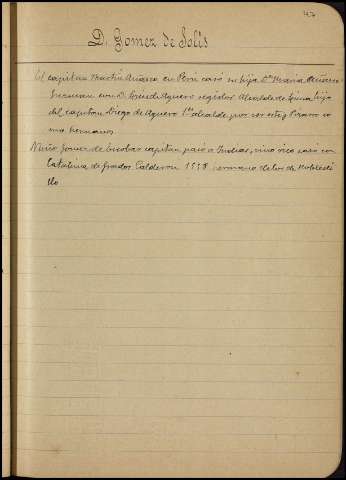 47
D. Gomez de Solis
El capitan Martin en Peru caso su hija Dª Maria
Guzman con D. Agüero regidor Alcalde de Lima hijo
del capitan Diego de Agüero 1er alcalde, por ser este y Pizarro co
mo hermanos
Nuño Gomez de Escobar capitan pasó a Indias, vino rico casó con
Catalina de Prados Calderon 1558 hermano de los de Robledi
llo